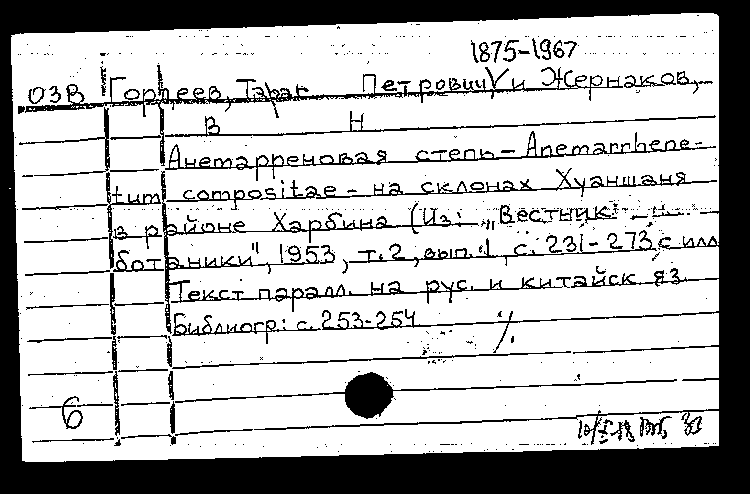 1875-1967
ОЗВ Гордеев, Тарас Петрович и Жернаков,
В Н
Анемарреновая степь - Anemarrhene-
tum compositae - на склонах Хуаншаня
в районе Харбина (Из: „Вестник
ботаники", 1953, т. 2, вып. 1, с. 231-273 с илл
Текст паралл. на рус. и китайск яз.
Библиогр: с. 253-254
6